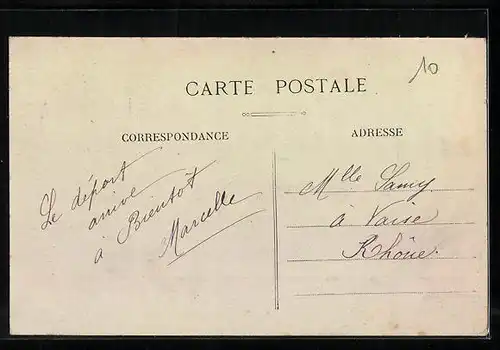 10
CARTE POSTALE
CORRESPONDANCE
ADRESSE
Le départ
arrive
à Bientôt
Marcelle
Mlle Samy
à Vaise
Rhône